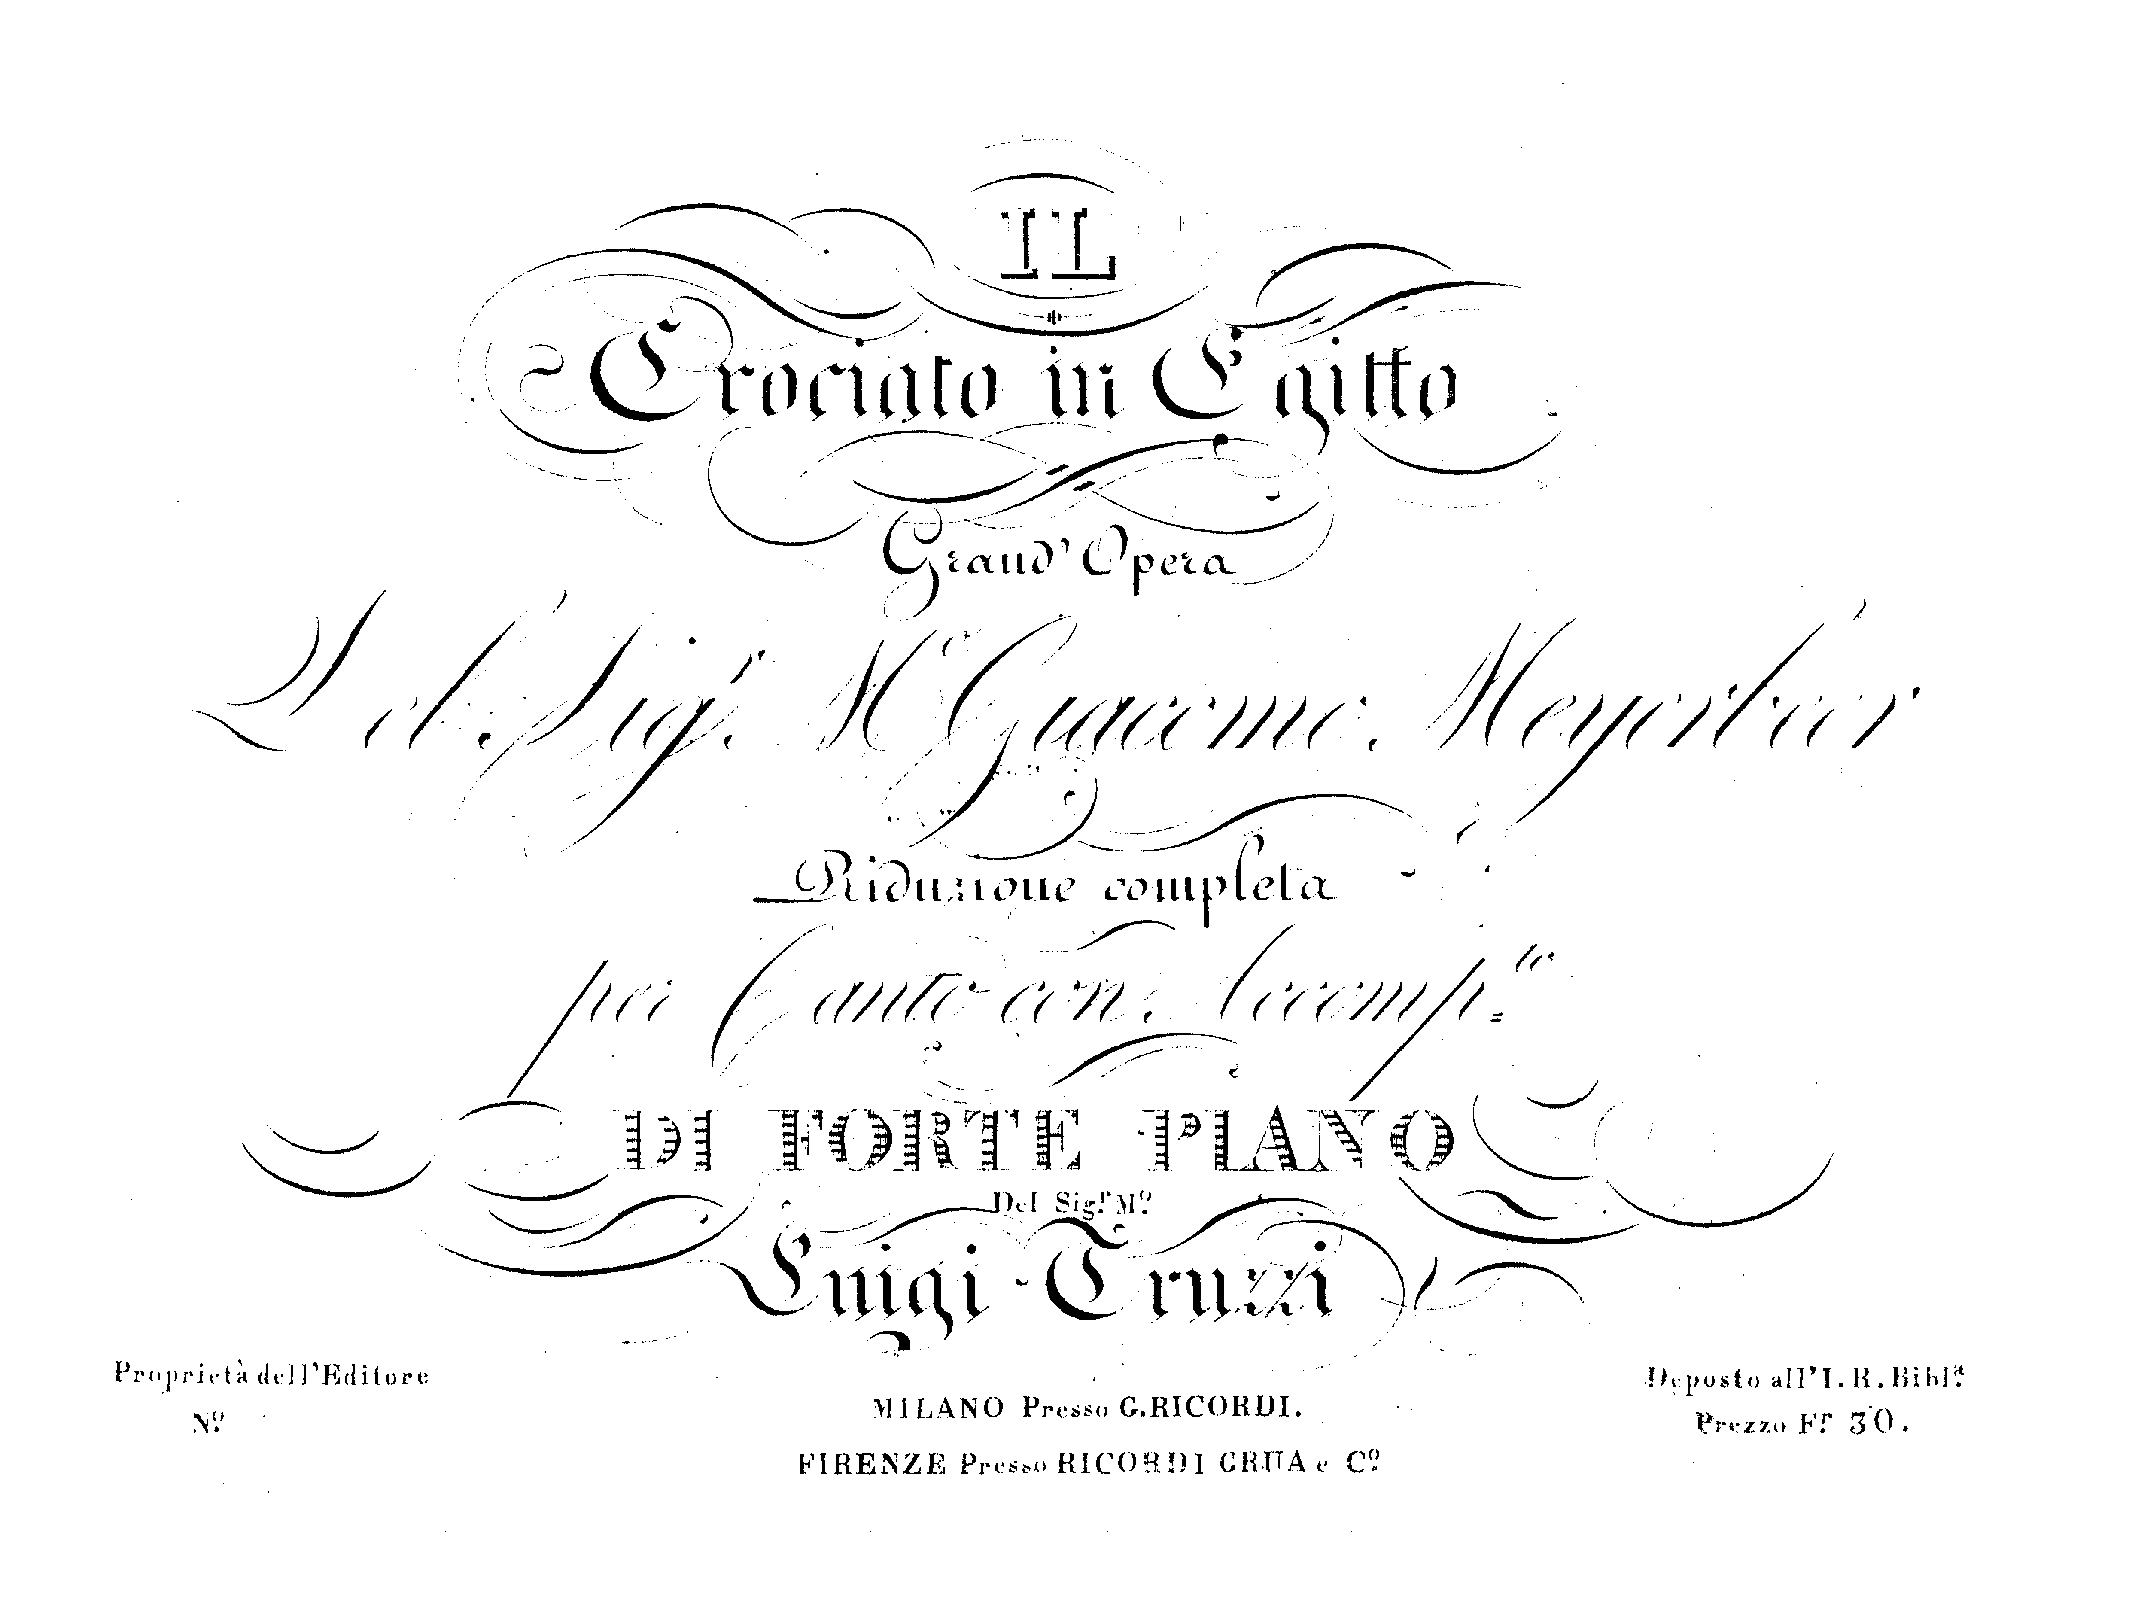 IL
Crociato in Egitto
Grand' Opera
Del Sig.r M.o Giacomo Meyerbeer
Riduzione completa
per Canto con Accomp.to
DI FORTE PIANO
Del Sig.r M.o
Luigi Truzzi
Proprietà dell'Editore
N.o
MILANO Presso G. RICORDI.
FIRENZE Presso RICORDI GRUA e C.o
Deposto all'I. R. Bibl.a
Prezzo F.r 30.